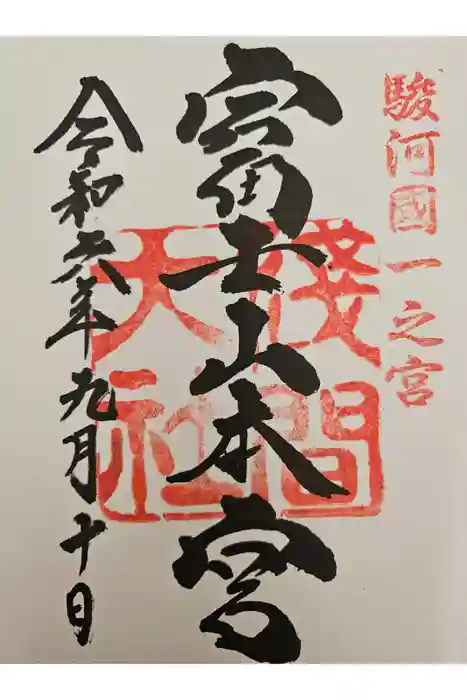 駿河國一之宮
富士山本宮
浅間
大社
令和六年九月十日